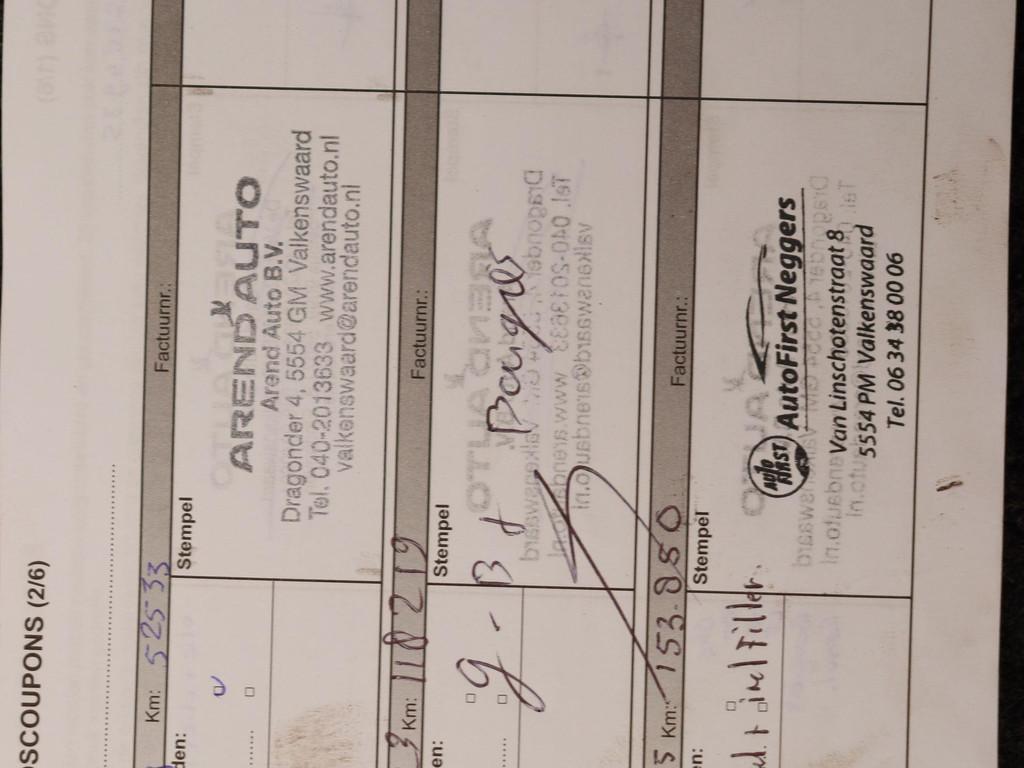 OSCOUPONS (2/6)
Km: 525-33
Factuurnr.:
den:
Stempel
AREND AUTO
Arend Auto B.V.
Dragonder 4, 5554 GM Valkenswaard
Tel. 040-2013633 www.arendauto.nl
valkenswaard@arendauto.nl
3 Km: 118219
Factuurnr.:
en:
Stempel
5 Km: 153.850
Factuurnr.:
en:
Stempel
AUTO FIRST
AutoFirst Neggers
Van Linschotenstraat 8
5554 PM Valkenswaard
Tel. 06 34 38 00 06